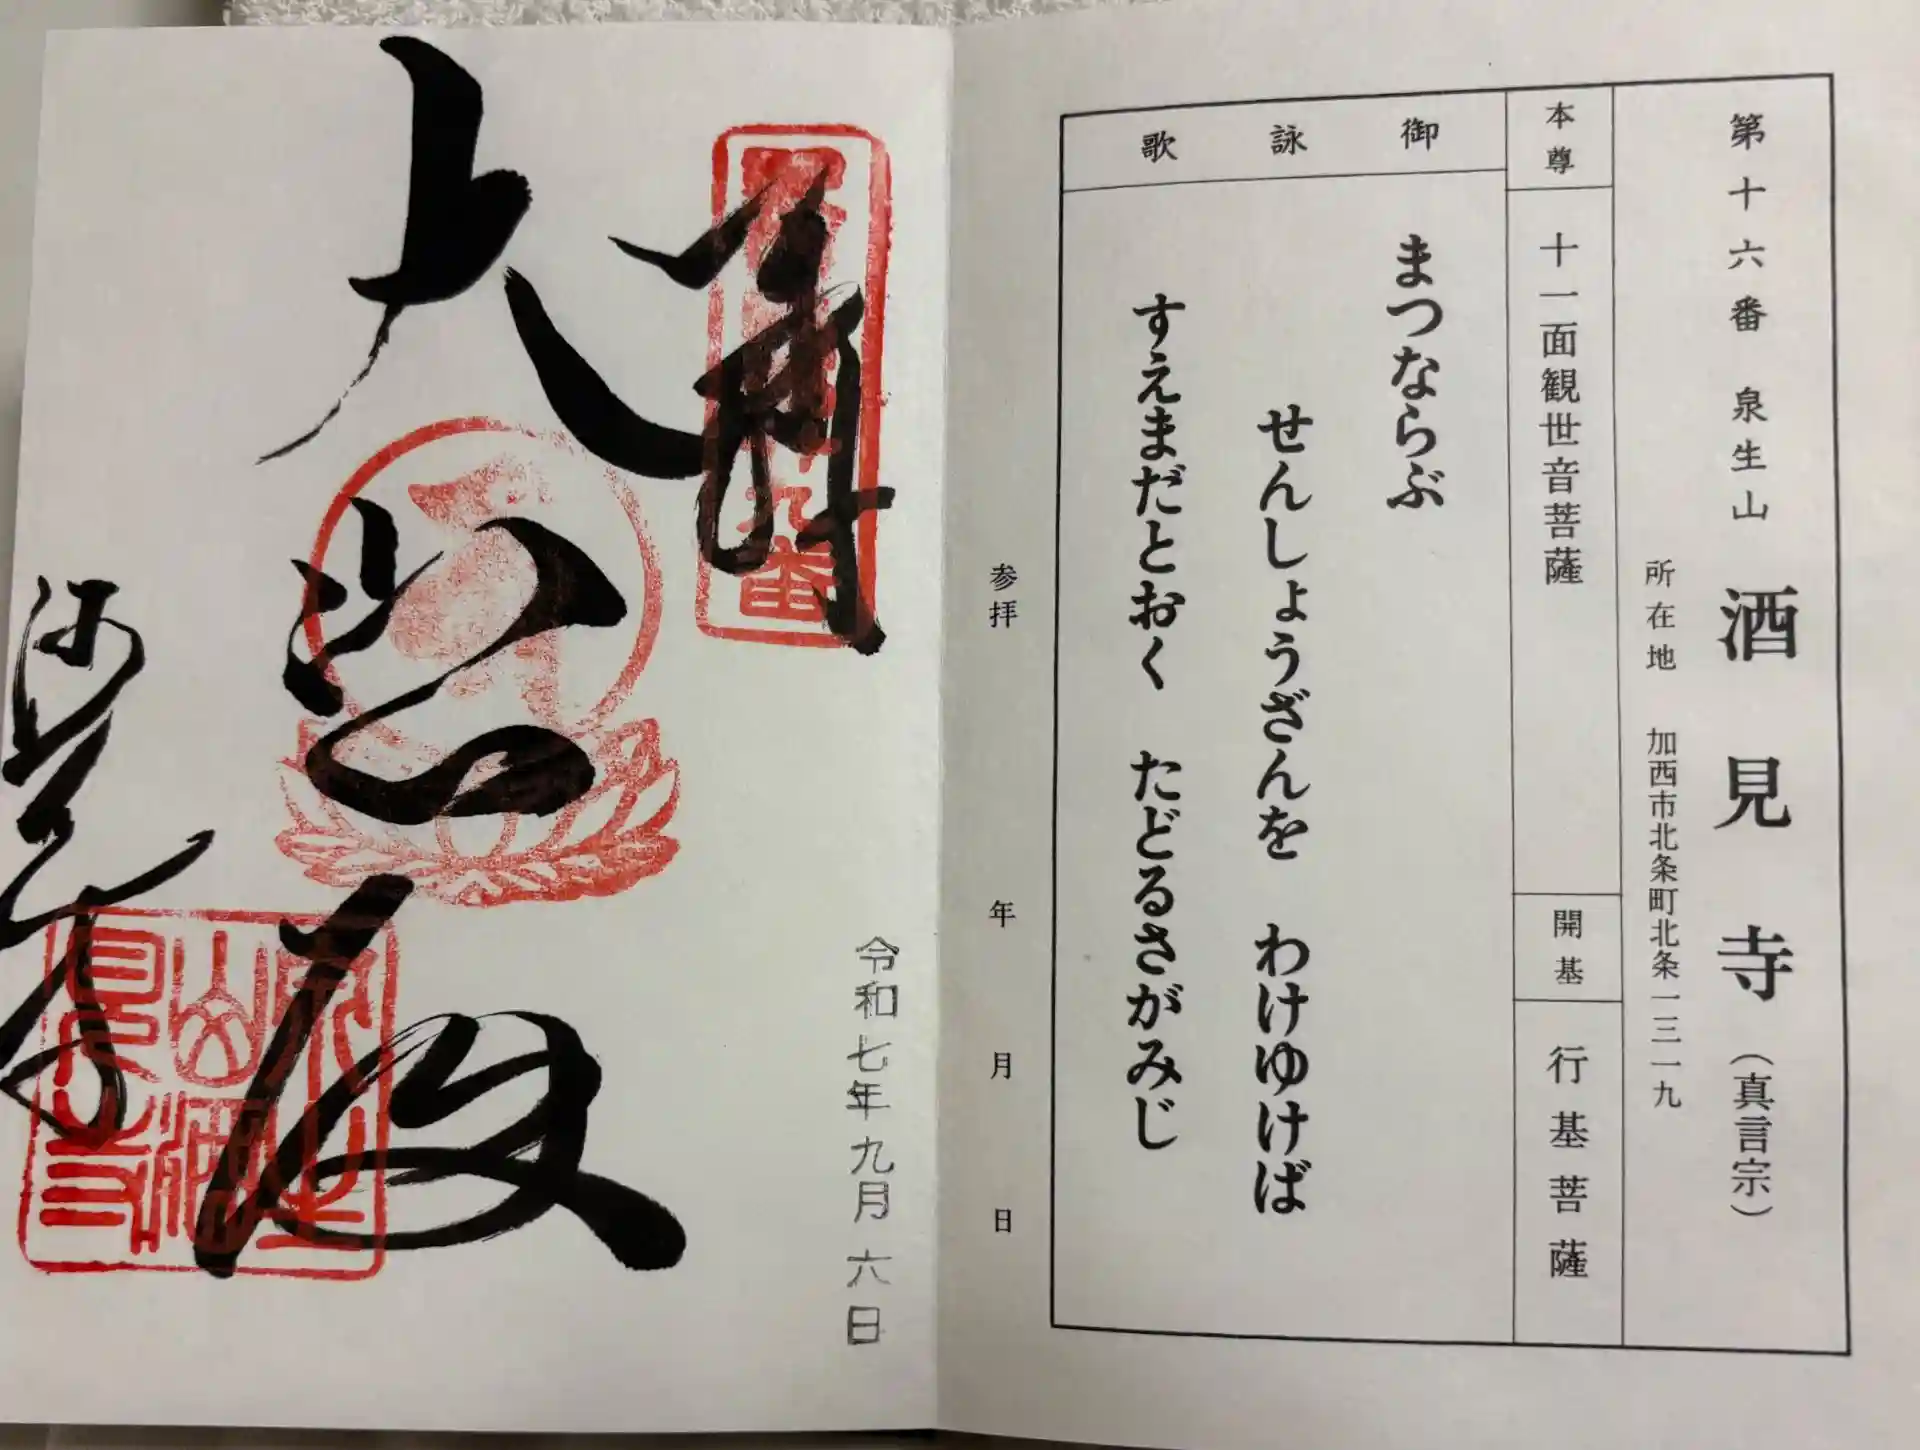 第十六番 泉生山 酒見寺(真言宗)
所在地 加西市北条町北条一三一九
本尊 十一面観世音菩薩
開基 行基菩薩
御詠歌
まつならぶ
せんしょうざんを わけゆけば
すえまだとおく たどるさがみじ
参拝 年 月 日
奉拝
令和七年九月六日
大悲殿
酒見寺